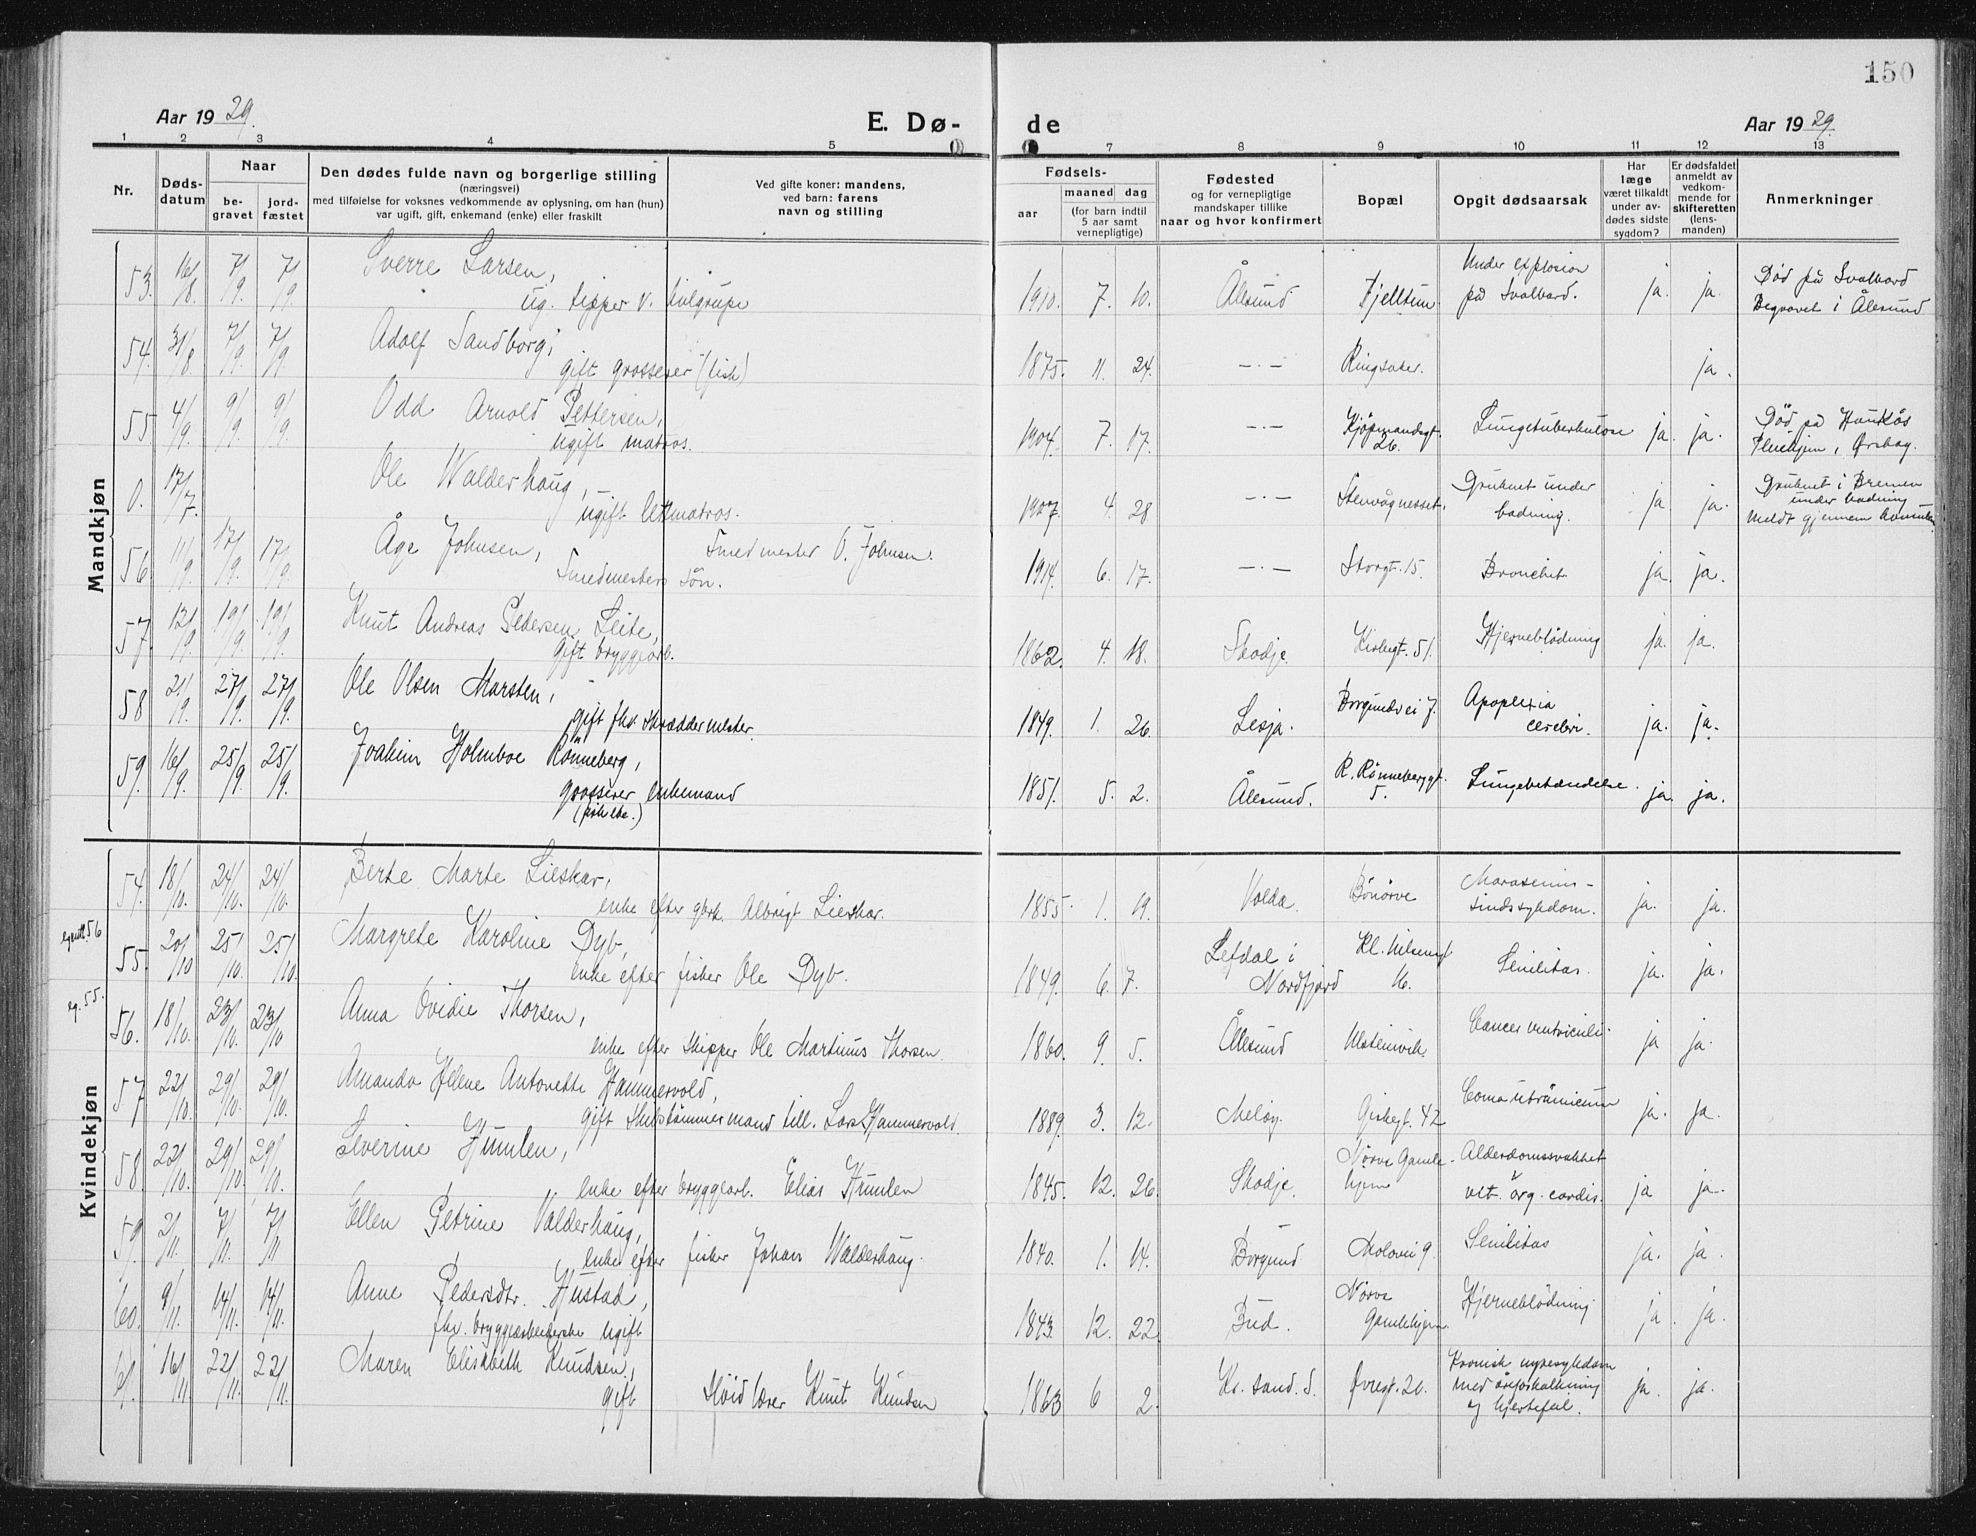 150
Aar 1929.
E. Dø-
de
Aar 1929.
1 2 3 4 5 7 8 9 10 11 12 13
Nr.
Døds-
datum
Naar
be-
gravet
jord-
fæstet
Den dødes fulde navn og borgerlige stilling
(næringsvei)
med tilføielse for voksnes vedkommende av oplysning, om han (hun)
var ugift, gift, enkemand (enke) eller fraskilt
Ved gifte koner: mandens,
ved barn: farens
navn og stilling
Fødsels-
aar
maaned dag
(for barn indtil
5 aar samt
vernepligtige)
Fødested
og for vernepligtige
mandskaper tillike
naar og hvor konfirmert
Bopæl
Opgit dødsaarsak
Har
læge
været tilkaldt
under av-
dødes sidste
sygdom?
Er dødsfaldet
anmeldt av
vedkom-
mende for
skifteretten
(lens-
manden)
Anmerkninger
Mandkjøn
53. 16/8. 7/9. 7/9. Sverre Larsen,
ug. tipper v. kulgrube
1910. 7. 10. Ålesund Fjelltun Under explosion
på Svalbard. ja. ja. Død på Svalbard
Begravet i Ålesund
54. 31/8 7/9. 7/9. Adolf Sandborg,
gift grosserer (fisk)
1875. 11. 24. —·— Ringsaker. ja.
55 4/9. 9/9 9/9. Odd Arnold Pettersen,
ugift matros.
1904. 7. 17. —·— Kjøpmandsgt.
26. Lungetuberkulose ja. ja. Død på
Pleiehjem, Ørskog.
0. 17/7. Ole Walderhaug,
ugift lettmatros.
1907. 4. 28 —·— Stenvågnesset. Druknet under
badning. ja ja. Druknet i Bremen
under badning
Meldt gjennem
56. 11/9. 17/9. 17/9. Åge Johnsen,
Smedmesters søn. Smedmester O. Johnsen.
1914. 6. 17. —·— Storgt. 15. Bronchit ja. ja.
57. 12/9. 19/9. 19/9. Knut Andreas Pedersen Leite,
gift bryggearb.
1862. 4. 18. Skodje. Kirkegt. 51. Hjerneblødning ja. ja.
58 21/9. 27/9. 27/9. Ole Olsen Marsten,
gift fhv. Skræddermester.
1849. 1. 26. Lesja. Borgundvei 7. Apoplexia
cerebri. ja. ja.
59. 16/9. 25/9. 25/9. Joakim Holmboe Rønneberg,
grosserer, enkemand
1851. 5. 2. Ålesund. R. Rønnebergt.
5. Lungebetændelse ja. ja.
Kvindekjøn
54. 18/10. 24/10. 24/10. Berte Marte Lieskar,
enke efter gbrk. Albrigt Lieskar.
1855. 1. 19. Volda.
Sindssykdom. ja. ja.
egentl. 56
55. 20/10 25/10. 25/10. Margrete Karoline Dyb,
enke efter fisker Ole Dyb.
1849. 6. 7. Lefdal i
Nordfjord Kl. Nilsensgt
16. Senilitas ja. ja.
eg. 55.
56. 18/10. 23/10. 23/10 Anna Ovidie Thorsen,
enke efter Skipper Ole Martinus Thorsen.
1860. 9. 5. Ålesund Ulsteinvik. Cancer ventriculi. ja ja.
57 22/10. 29/10. 29/10. Amanda Helene Antonette Hammervold,
gift Skibstømmermand till. Lars Hammervold.
1889. 3. 12. Meløy. Girkegt. 42 Coma ja. ja.
58. 22/10. 29/10 29/10. Severine Humlen,
enke efter bryggearb. Elias Humlen
1845. 12. 26. Skodje. Nørve Gamle-
hjem Alderdomssvakhet
vit. org. cordis. ja ja.
59. 2/11. 7/11. 7/11 Ellen Petrine Valderhaug,
enke efter fisker Johan Walderhaug.
1840. 1. 14. Borgund Molovei 9. Senilitas ja. ja.
60. 9/11. 14/11. 14/11. Anne Pedersdtr. Hustad,
fhv. bryggearbeiderske ugift
1843. 12. 22. Bud. Nørve
Gamlehjem. Hjerneblødning ja. ja.
61. 16/11 22/11. 22/11. Maren Elisabeth Knudsen,
gift Knut Knudsen
1863 6 2. Kr. sand. S. Øvregt. 20. Kronisk nyresykdom
med åreforkalkning
og hjertefeil. ja. ja.